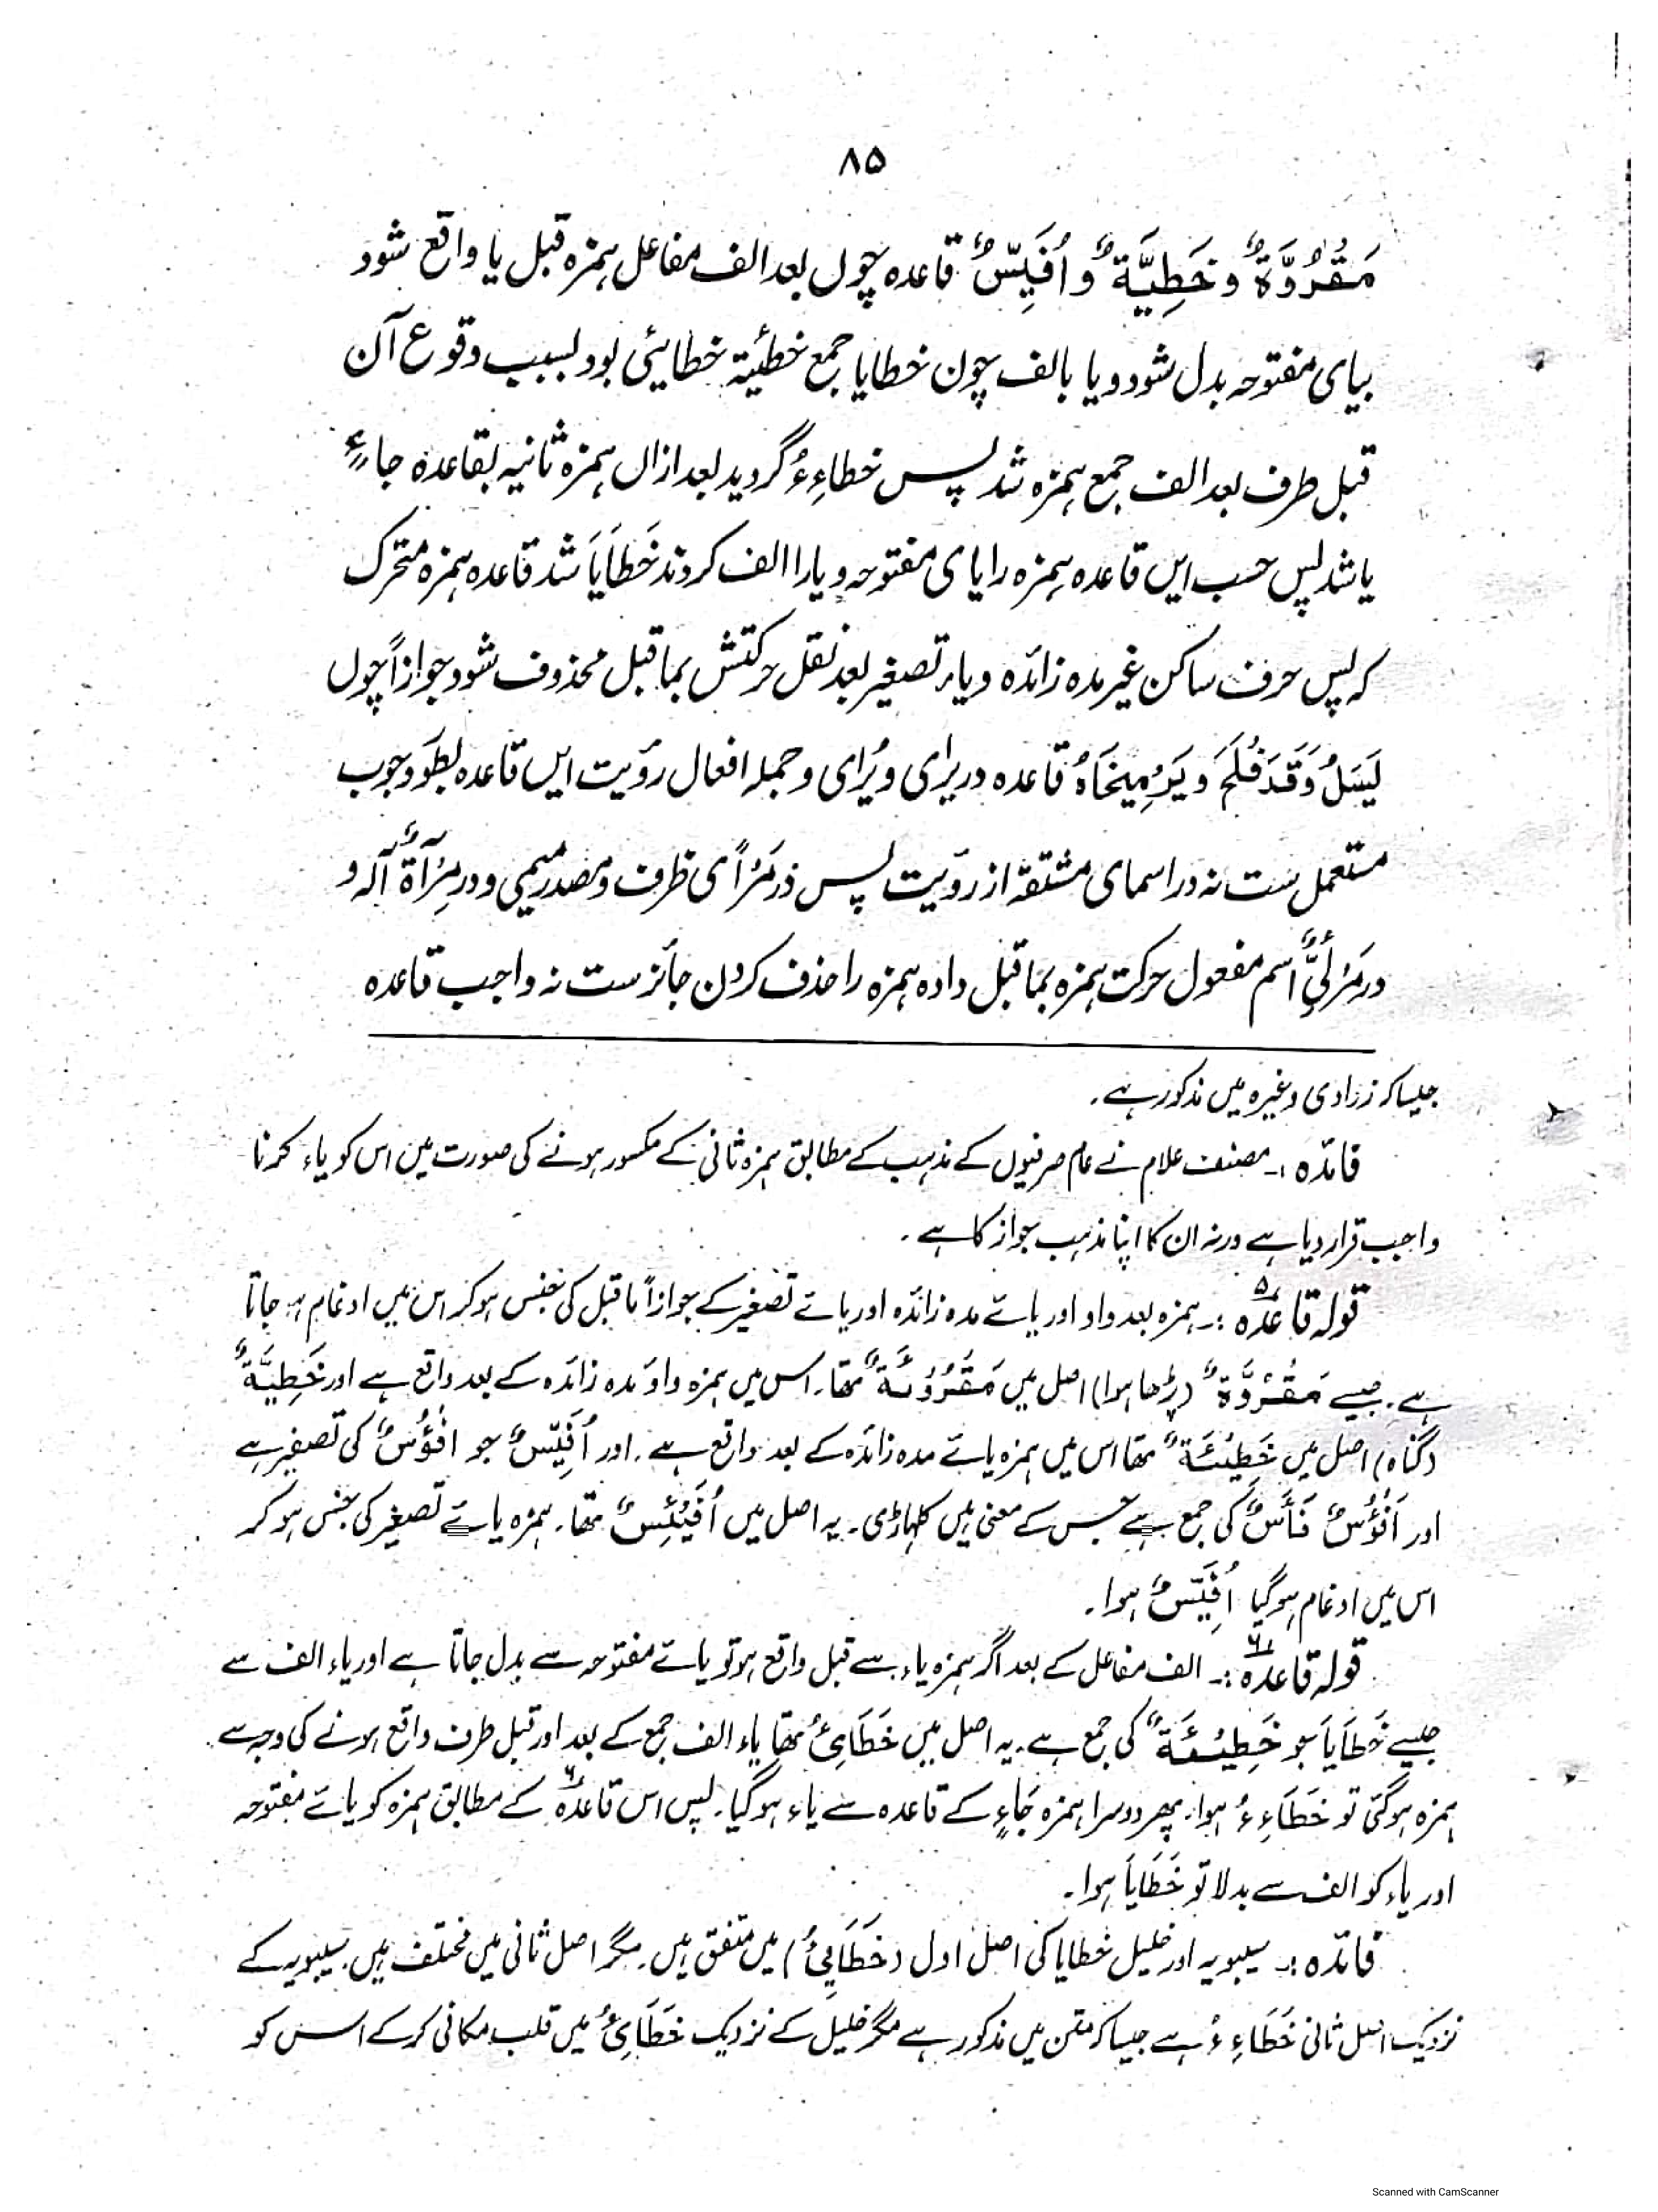 ۸۵
مَقْرُوَّةٌ و خَطِيَّةٌ و اُفَيِّسٌ قاعده چول بعد الف مفاعل ہمزه قبل یا واقع شود
بیای مفتوحہ بدل شود و یا بالف چون خطایا جمع خطئیۃ خطایئی بود بسبب وقوع آن
قبل طرف بعد الف جمع ہمزه شد پس خطاءِءُ گردید بعد ازاں ہمزه ثانیہ بقاعده جاءٍ
یا شد پس حسب ایں قاعده ہمزه را یای مفتوحہ و یا را الف کردند خَطَایَا شد قاعده ہمزه متحرک
کہ پس حرف ساکن غیر مده زائده و یاء تصغیر بعد نقل حرکتش بماقبل محذوف شود جوازاً چوں
یَسَلُ وَ قَدَ فْلَحَ و یَرْمِیَخَاهُ قاعده در یرای و یُرای و جملہ افعال رؤیت ایں قاعده بطور وجوب
مستعمل ست نہ در اسمای مشتقہ از رؤیت پس در مَرْأًی ظرف و مصدر میمی و در مِرْآةٌ آلہ و
در مَرْئِیٌّ اسم مفعول حرکت ہمزه بماقبل داده ہمزه را حذف کردن جائز ست نہ واجب قاعده
جیسا کہ زرادی وغیرہ میں مذکور ہے۔
فائدہ :۔ مصنف علام نے عام صرفیوں کے مذہب کے مطابق ہمزہ ثانی کے مکسور ہونے کی صورت میں اس کو یاء کرنا
واجب قرار دیا ہے ورنہ ان کا اپنا مذہب جواز کا ہے ۔
قولہ قاعدہ ۵ :۔ ہمزہ بعد واو اور یائے مدہ زائدہ اور یائے تصغیر کے جوازاً ماقبل کی جنس ہو کر اس میں ادغام ہو جاتا
ہے۔ جیسے مَقْرُوَّةٌ (پڑھا ہوا) اصل میں مَقْرُوْئَةٌ تھا۔ اس میں ہمزہ واوَ مدہ زائدہ کے بعد واقع ہے اور خَطِيَّةٌ
(گناہ) اصل میں خَطِيْئَةٌ تھا اس میں ہمزہ یائے مدہ زائدہ کے بعد واقع ہے۔ اور اُفَيِّسٌ جو افْؤُسٌ کی تصغیر ہے
اور اَفْؤُسٌ فَأْسٌ کی جمع ہے جس کے معنی ہیں کلہاڑی۔ یہ اصل میں اُفَيْئِسٌ تھا۔ ہمزہ یائے تصغیر کی جنس ہو کر
اس میں ادغام ہو گیا اُفَيِّسٌ ہوا۔
قولہ قاعدہ ۶ :۔ الف مفاعل کے بعد اگر ہمزہ یاء سے قبل واقع ہو تو یائے مفتوحہ سے بدل جاتا ہے اور یاء الف سے
جیسے خَطَایَا جو خَطِيْئَةٌ کی جمع ہے۔ یہ اصل میں خَطَایِئُ تھا یاء الف جمع کے بعد اور قبل طرف واقع ہونے کی وجہ سے
ہمزہ ہو گئی تو خَطَاءِءُ ہوا۔ پھر دوسرا ہمزہ جَاءٍ کے قاعدہ سے یاء ہو گیا۔ پس اس قاعدہ ۶ کے مطابق ہمزہ کو یائے مفتوحہ
اور یاء کو الف سے بدلا تو خَطَایَا ہوا۔
فائدہ :۔ سیبویہ اور خلیل خطایا کی اصل اول (خَطَایِئُ) میں متفق ہیں۔ مگر اصل ثانی میں مختلف ہیں۔ سیبویہ کے
نزدیک اصل ثانی خَطَاءِءُ ہے جیسا کہ متن میں مذکور ہے مگر خلیل کے نزدیک خَطَایِئُ میں قلب مکانی کر کے اس کو
Scanned with CamScanner